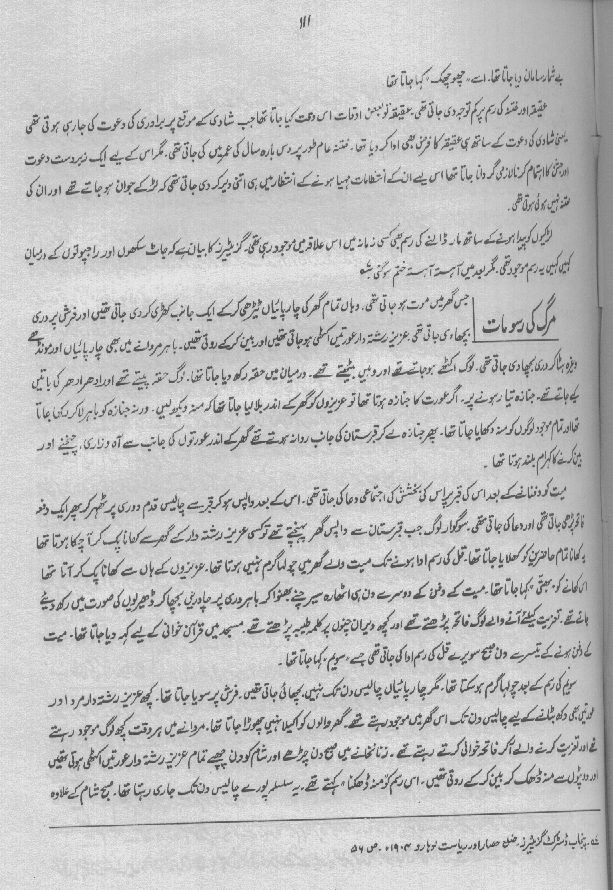 ۱۱۱
بے شمار سامان دیا جاتا تھا۔ اسے "چھوچھک" کہا جاتا تھا
عقیقہ اور ختنہ کی رسم پر کم توجہ دی جاتی تھی۔ عقیقہ تو بعض اوقات اس وقت کیا جاتا تھا جب شادی کے موقع پر برادری کی دعوت کی جا رہی ہوتی تھی
یعنی شادی کی دعوت کے ساتھ ہی عقیقہ کا فرض بھی ادا کر دیا جاتا تھا۔ ختنہ عام طور پر دس بارہ سال کی عمر میں کی جاتی تھی۔ مگر اس کے لیے ایک زبردست دعوت
اور جشن کا اہتمام کرنا لازمی گردانا جاتا تھا اس لیے ان کے انتظامات مہیا ہونے کے انتظار میں ہی اتنی دیر کر دی جاتی تھی کہ لڑکے جوان ہو جاتے تھے اور ان کی
ختنہ نہیں ہوئی ہوتی تھی۔
لڑکیوں کو پیدا ہونے کے ساتھ مار ڈالنے کی رسم بھی کسی زمانہ میں اس علاقہ میں موجود رہی تھی۔ گزیٹیئرز کا بیان ہے کہ جاٹ سکھوں اور راجپوتوں کے درمیان
کہیں کہیں یہ رسم موجود تھی۔ مگر بعد میں آہستہ آہستہ ختم ہو گئی
مرگ کی رسومات
جس گھر میں موت ہو جاتی تھی۔ وہاں تمام گھر کی چارپائیاں ٹیڑھی کر کے ایک جانب کھڑی کر دی جاتی تھیں اور فرش پر دری
بچھا دی جاتی تھی عزیز رشتہ دار عورتیں اکٹھی ہو جاتی تھیں اور بین کر کے روتی تھیں۔ باہر مردانے میں بھی چارپائیاں اور مونڈھے
وغیرہ ہٹا کر دری بچھا دی جاتی تھی۔ لوگ اکٹھے ہو جاتے تھے اور وہیں بیٹھتے تھے۔ درمیان میں حقہ رکھ دیا جاتا تھا۔ لوگ حقہ پیتے تھے اور ادھر ادھر کی باتیں
کیے جاتے تھے۔ جنازہ تیار ہونے پر۔ اگر عورت کا جنازہ ہوتا تھا تو عزیزوں کو گھر کے اندر بلا لیا جاتا تھا کہ منہ دیکھ لیں۔ ورنہ جنازہ کو باہر لا کر رکھا جاتا
تھا اور تمام موجود لوگوں کو منہ دکھایا جاتا تھا۔ پھر جنازہ لے کر قبرستان کی جانب روانہ ہوتے تھے گھر کے اندر عورتوں کی جانب سے آہ و زاری، چیخنے اور
بین کرنے کا کہرام بلند ہوتا تھا۔
میت کو دفنانے کے بعد اس کی قبر پر اس کی بخشش کی اجتماعی دعا کی جاتی تھی۔ اس کے بعد واپس ہو کر قبر سے چالیس قدم دوری پر ٹھہر کر پھر ایک دفعہ
فاتحہ پڑھی جاتی تھی اور دعا کی جاتی تھی۔ سوگوار لوگ جب قبرستان سے واپس گھر پہنچتے تھے تو کسی عزیز رشتہ دار کے گھر سے کھانا پک کر آ چکا ہوتا تھا
یہ کھانا تمام حاضرین کو کھلایا جاتا تھا۔ قل کی رسم ادا ہونے تک میت والے گھر میں چولہا گرم نہیں ہوتا تھا۔ عزیزوں کے ہاں سے کھانا پک کر آتا تھا
اس کھانے کو " کہا جاتا تھا۔ میت کے دفن کے دوسرے دن ہی اٹھارہ سیر چنے بھنوا کر باہر دری پر چادریں بچھا کر ڈھیریوں کی صورت میں رکھ دیئے
جاتے تھے۔ تعزیت کیلئے آنے والے لوگ فاتحہ پڑھتے تھے اور کچھ دیر ان چنوں پر کلمہ طیبہ پڑھتے تھے۔ مسجد میں قرآن خوانی کے لیے کہہ دیا جاتا تھا۔ میت
کے دفن ہونے کے تیسرے دن صبح سویرے قل کی رسم ادا کی جاتی تھی جسے "سویم" کہا جاتا تھا۔
سویم کی رسم کے بعد چولہا گرم ہو سکتا تھا۔ مگر چارپائیاں چالیس دن تک نہیں بچھائی جاتی تھیں۔ فرش پر سویا جاتا تھا۔ کچھ عزیز رشتہ دار مرد اور
عورتیں بھی دکھ بٹانے کے لیے چالیس دن تک اس گھر میں موجود رہتے تھے۔ گھر والوں کو اکیلا نہیں چھوڑا جاتا تھا۔ مردانے میں ہر وقت کچھ لوگ موجود رہتے
تھے اور تعزیت کرنے والے آ کر فاتحہ خوانی کرتے رہتے تھے۔ زنانخانے میں صبح دن چڑھے اور شام کو دن چھپے تمام عزیز رشتہ دار عورتیں اکٹھی ہوتی تھیں
اور دوپٹوں سے منہ ڈھک کر بین کر کے روتی تھیں۔ اس رسم کو منہ ڈھکنا کہتے تھے۔ یہ سلسلہ پورے چالیس دن تک جاری رہتا تھا۔ صبح شام کے علاوہ
پنجاب ڈسٹرکٹ گزیٹیئرز۔ ضلع حصار اور ریاست لوہارو ۱۹۰۴ء۔ ص ۵۶